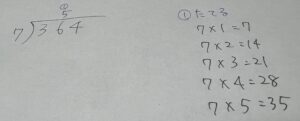 ①
5
7)364
①たてる
7×1=7
7×2=14
7×3=21
7×4=28
7×5=35